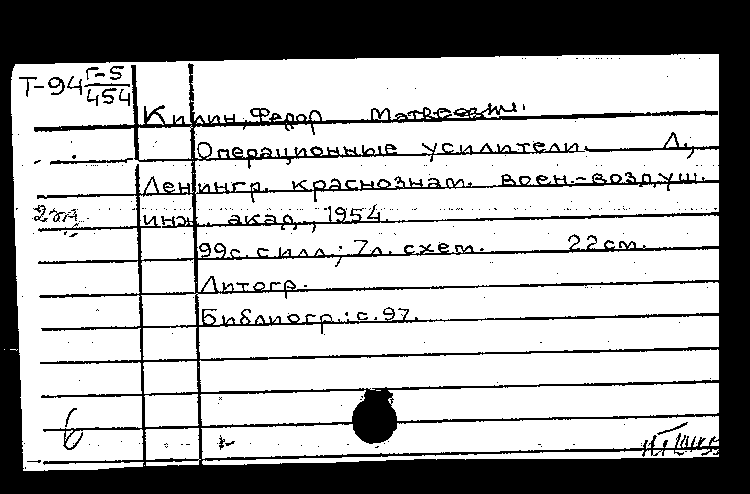 Т-94 Г-5
454
Килин, Федор Матвеевич.
Операционные усилители. Л.,
Ленингр. краснознам. воен.-воздуш.
2 эк
инж. акад., 1954.
99с. с илл.; 7л. схем. 22см.
Литогр.
Библиогр.: с. 97.
6